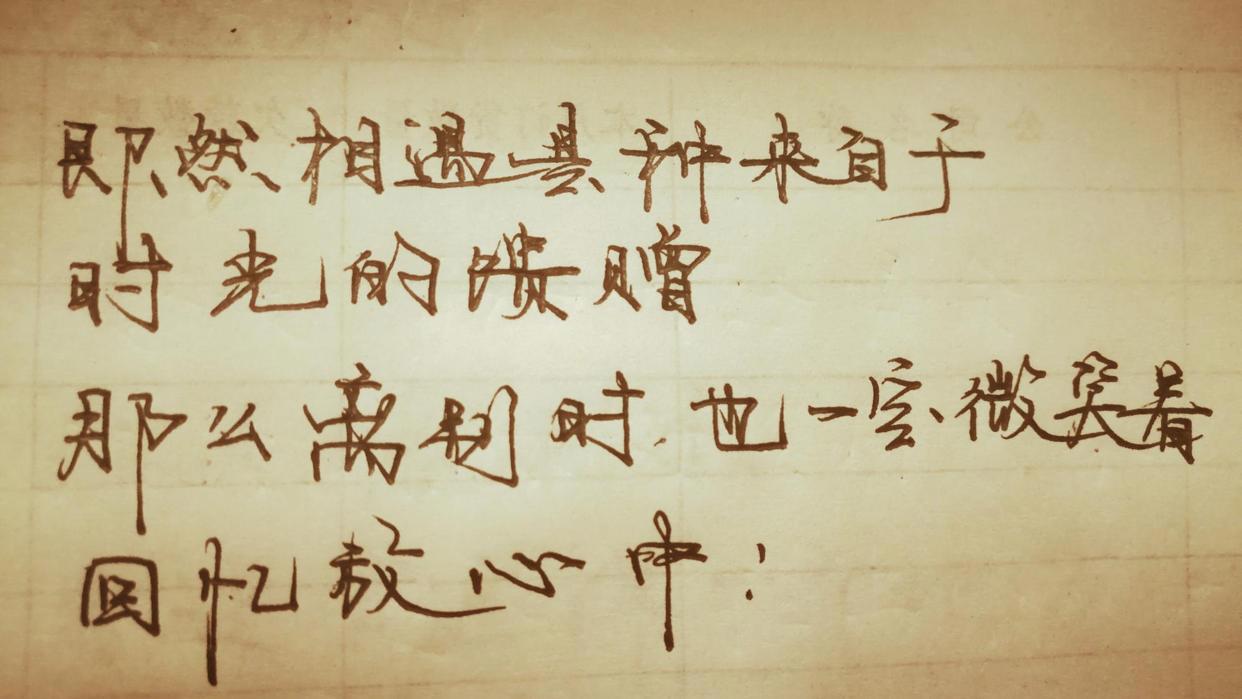 即然相遇是种来自于
时光的馈赠
那么离别时也一定微笑着
回忆放心中!